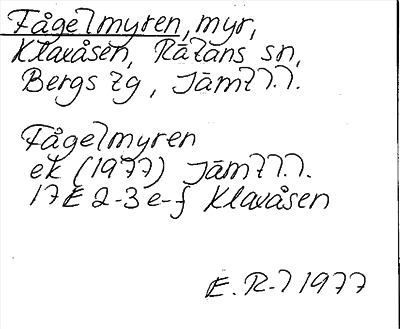 Fågelmyren, myr,
Klaxåsen, Rätans sn,
Bergs tg, Jämtl.l.
Fågelmyren
ek (1977) Jämtl.l.
17E 2-3 e-f Klaxåsen
E. R-l 1977